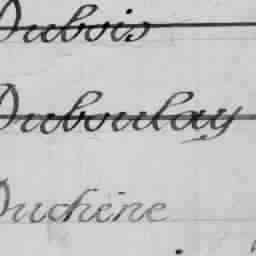 Dubois
Duboulay
Duchêne